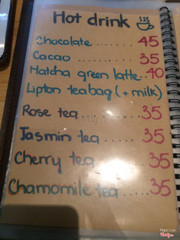 Hot drink
Chocolate ...... 45
Cacao ...... 35
Matcha green latte. 40
Lipton teabag (+ milk)
Rose tea ...... 35
Jasmin tea ... 35
Cherry tea ..... 35
Chamomile tea ..... 35